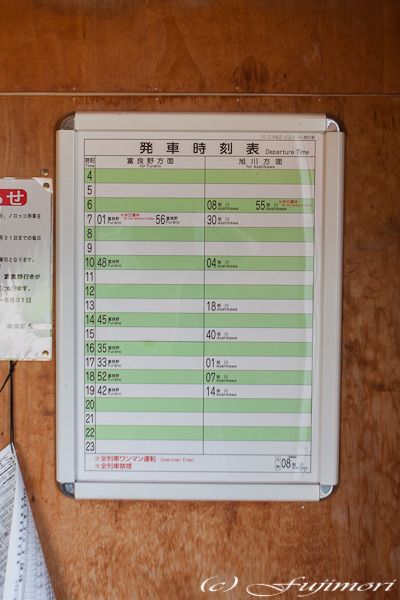 発車時刻表 Departure Time
時刻 Time 富良野方面 for Furano 旭川方面 for Asahikawa
4
5
6 08 旭川 Asahikawa 55 旭川 Asahikawa
7 01 富良野 Furano 56 富良野 Furano 30 旭川 Asahikawa
8
9
10 48 富良野 Furano 04 旭川 Asahikawa
11
12
13 18 旭川 Asahikawa
14 45 富良野 Furano
15 40 旭川 Asahikawa
16 35 富良野 Furano
17 33 富良野 Furano 01 旭川 Asahikawa
18 52 富良野 Furano 07 旭川 Asahikawa
19 42 富良野 Furano 14 旭川 Asahikawa
20
21
22
23
※全列車ワンマン運転 One-man Train
※全列車禁煙
08
らせ
、ノロッコ列車を
月31日までの毎日
となります。
富良野行きが
なります。
~8月31日
(c) Fujimori